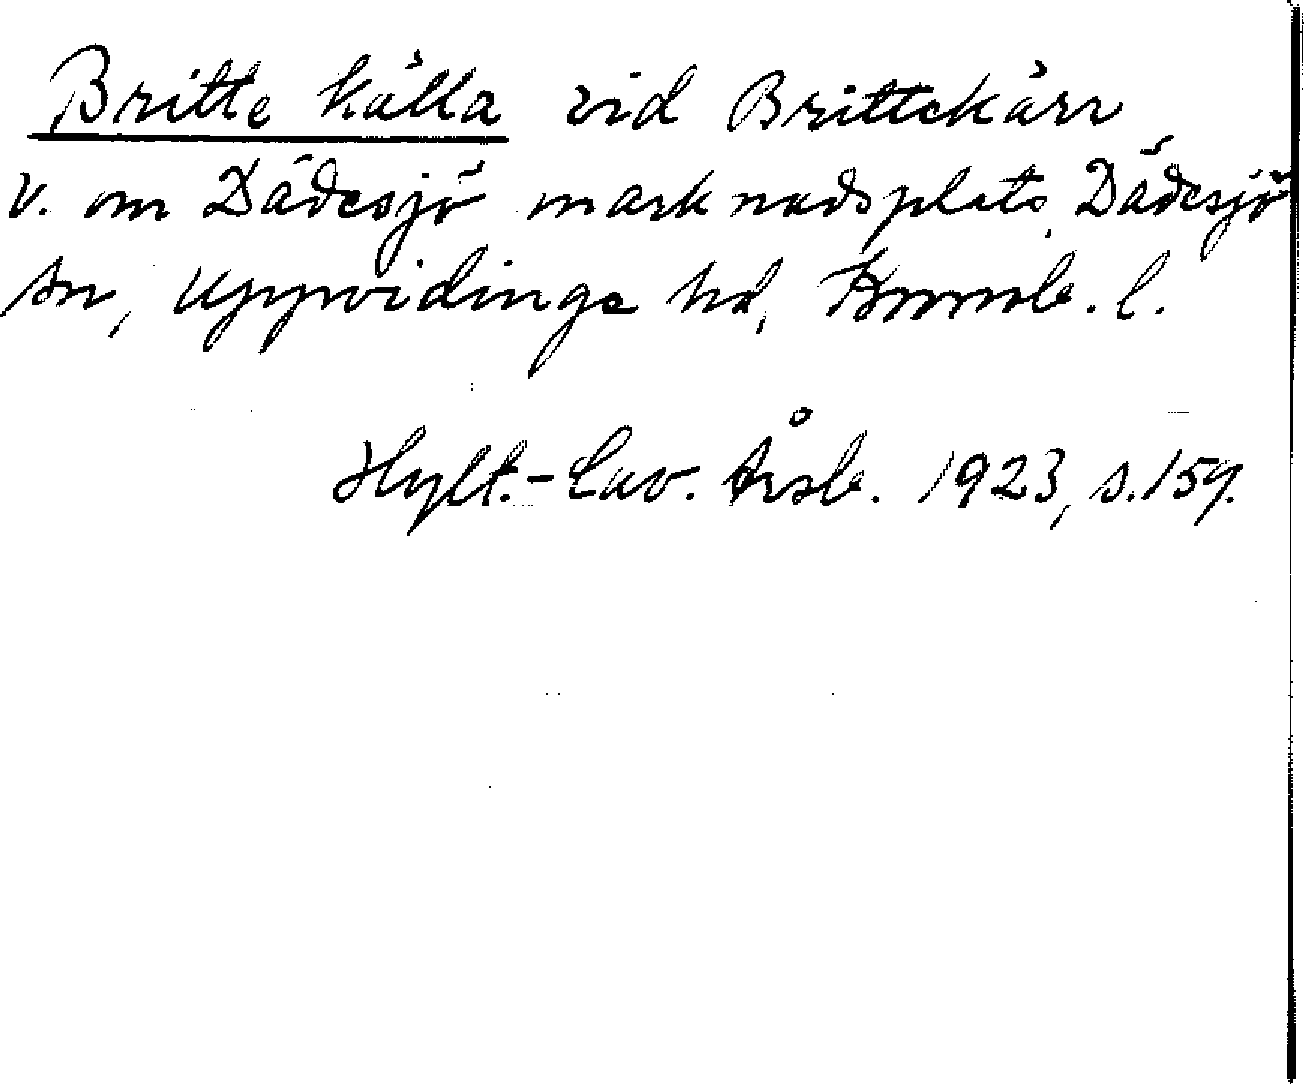 Britte källa vid Brittekärr
V. om Dädesjö marknadsplats, Dädesjö
sn, Uppvidinge hd, Kronob. l.
Hylt.-Cav. Årsb. 1923, s. 159.